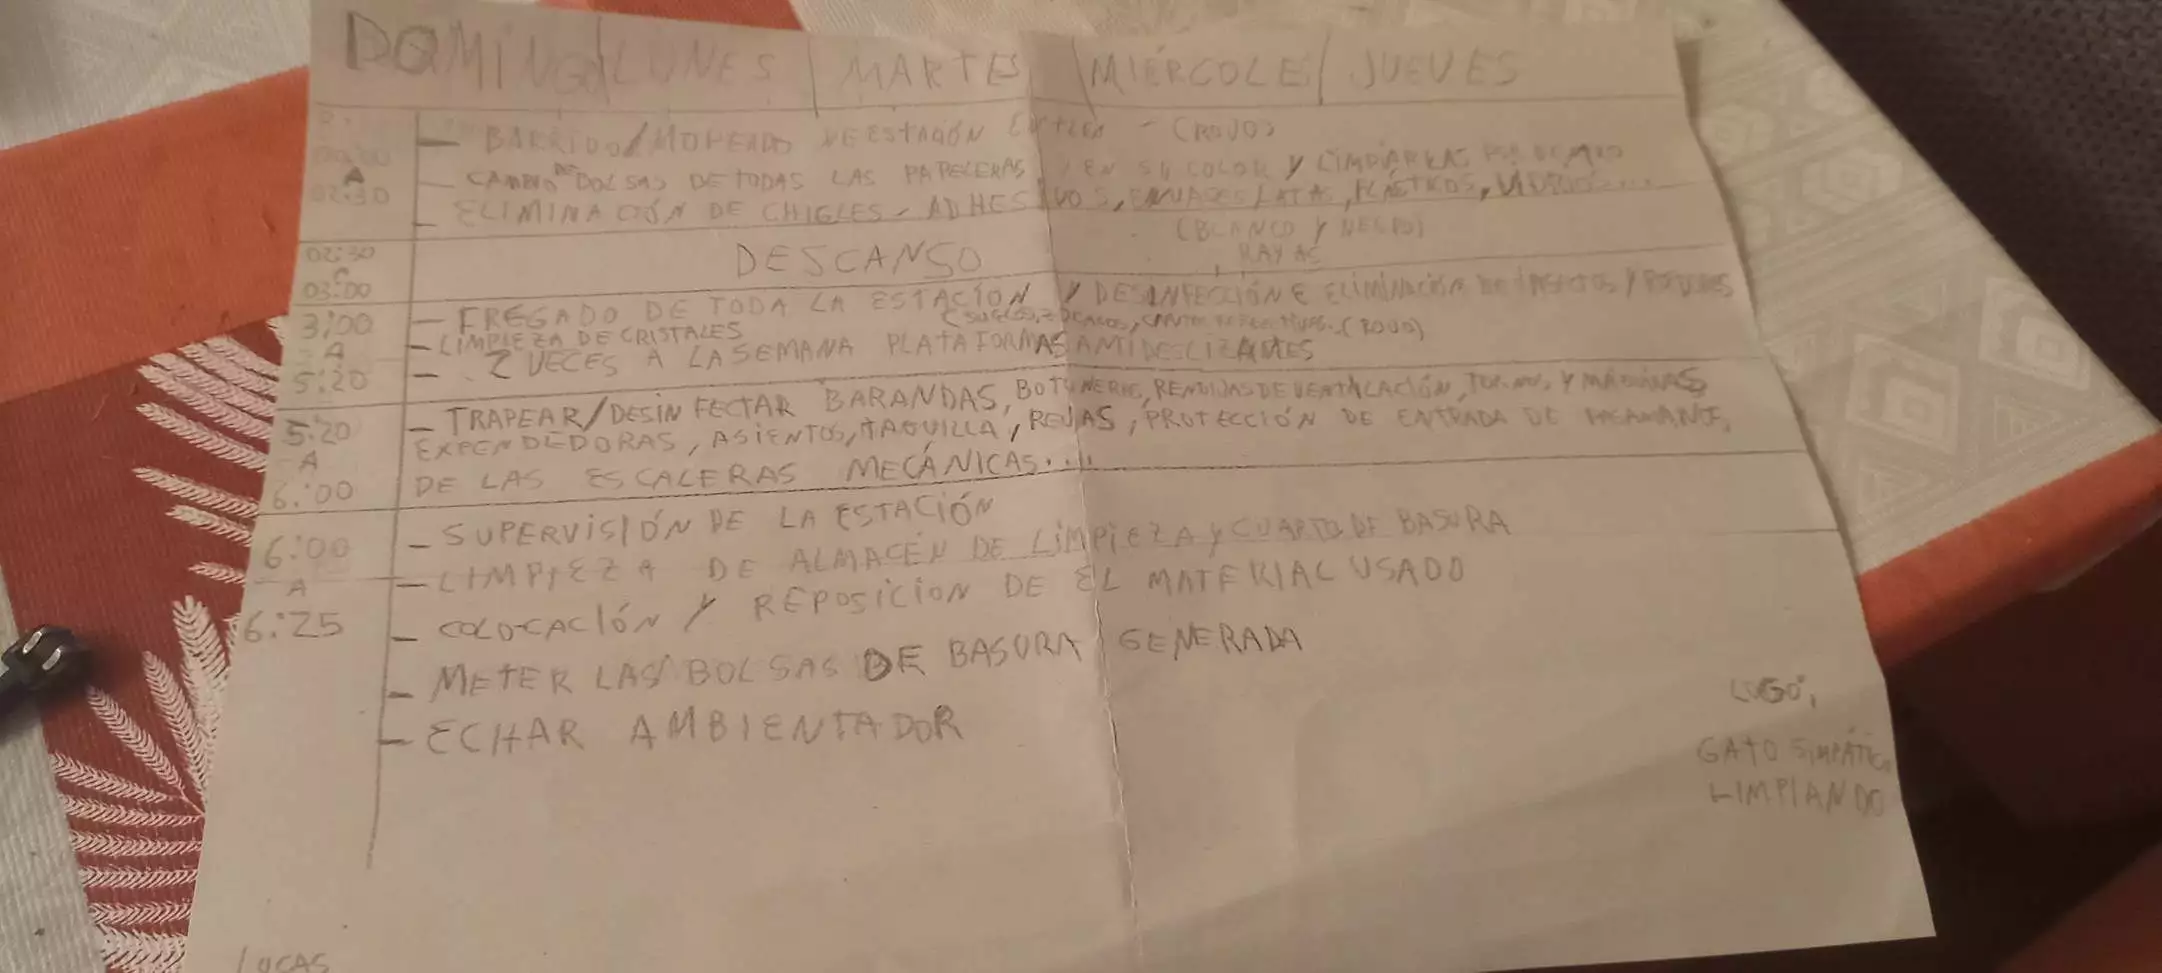 DOMINGO | LUNES | MARTES | MIÉRCOLES | JUEVES
A
02:30
- BARRIDO/MOPEADO DE ESTACIÓN - (ROJO)
- CAMBIO DE BOLSAS DE TODAS LAS PAPELERAS EN SU COLOR Y LIMPIARLAS POR DENTRO
- ELIMINACIÓN DE CHICLES, ADHESIVOS, ENVASES, LATAS, PLÁSTICOS, VIDRIOS...
02:30
03:00
DESCANSO
(BLANCO Y NEGRO)
RAYAS
3:00
A
5:20
- FREGADO DE TODA LA ESTACIÓN Y DESINFECCIÓN E ELIMINACIÓN DE INSECTOS Y
(SUELOS, ZÓCALOS, (ROJO)
- LIMPIEZA DE CRISTALES
- 2 VECES A LA SEMANA PLATAFORMAS AMIDESLIZANTES
5:20
A
6:00
- TRAPEAR/DESINFECTAR BARANDAS, RENDIJAS DE VENTILACIÓN, Y MÁQUINAS
EXPENDEDORAS, ASIENTOS, TAQUILLA, REJAS, PROTECCIÓN DE ENTRADA DE
DE LAS ESCALERAS MECÁNICAS...
6:00
A
6:25
- SUPERVISIÓN DE LA ESTACIÓN
- LIMPIEZA DE ALMACÉN DE LIMPIEZA Y CUARTO DE BASURA
- COLOCACIÓN Y REPOSICION DE EL MATERIAL USADO
- METER LAS BOLSAS DE BASURA GENERADA
- ECHAR AMBIENTADOR
LOGO,
GATO SIMPÁTICO
LIMPIANDO
LUCAS